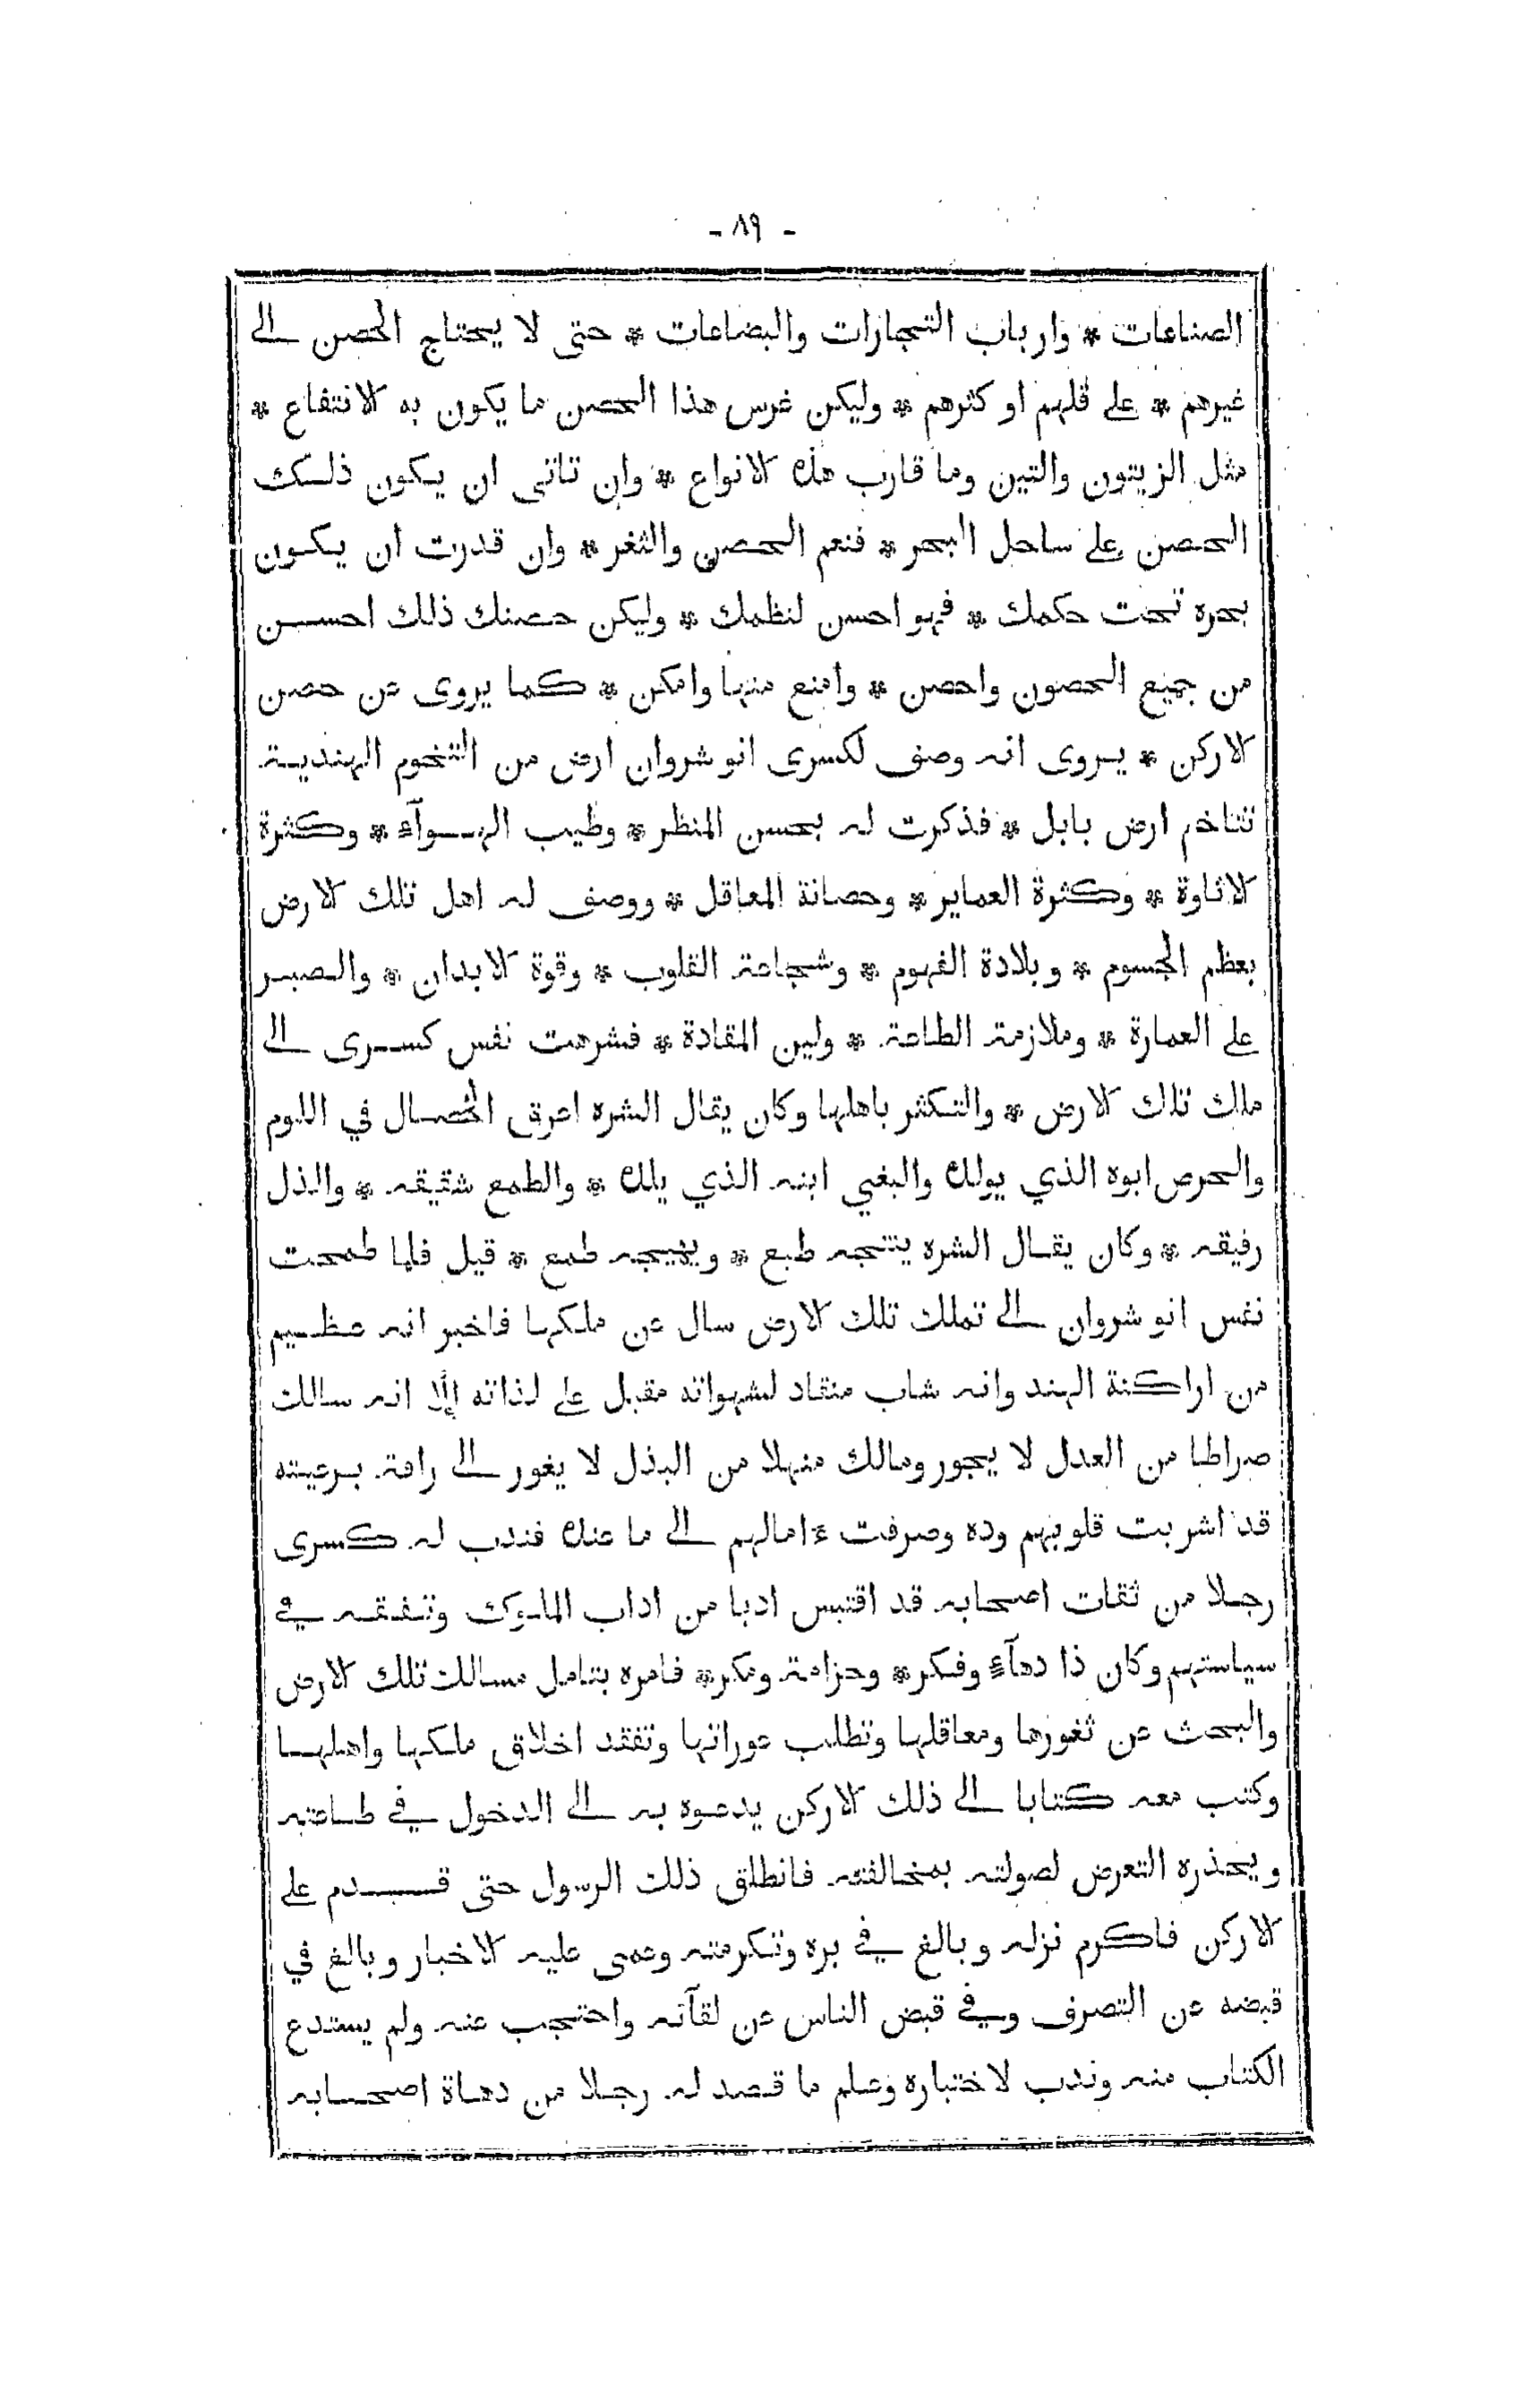 - ٨٩ -
الصناعات * وارباب التجارات والبضاعات * حتى لا يحتاج الحصن الى
غيرهم * على قلهم او كثرهم * وليكن غرس هذا الحصن ما يكون به الانتفاع *
مثل الزيتون والتين وما قارب هذه الانواع * وان تاتى ان يكون ذلك
الحصن على ساحل البحر * فنعم الحصن والثغر * وان قدرت ان يكون
بحره تحت حكمك * فهو احسن لنظمك * وليكن حصنك ذلك احسن
من جميع الحصون واحصن * وامنع منها وامكن * كما يروى عن حصن
الاركن * يروى انه وصف لكسرى انوشروان ارض من التخوم الهندية
تتاخم ارض بابل * فذكرت له بحسن المنظر * وطيب الهوآء * وكثرة
الاتاوة * وكثرة العماير * وحصانة المعاقل * ووصف له اهل تلك الارض
بعظم الجسوم * وبلادة الفهوم * وشجاعة القلوب * وقوة الابدان * والصبر
على العمارة * وملازمة الطاعة * ولين المقادة * فشرهت نفس كسرى الى
ملك تلك الارض * والتكثر باهلها وكان يقال الشره اعرق الخصال في اللوم
والحرص ابوه الذي يولده والبغي ابنه الذي يلده * والطمع شقيقه * والذل
رفيقه * وكان يقال الشره ينتجه طبع * ويهيجه طمع * قيل فلما طمحت
نفس انوشروان الى تملك تلك الارض سال عن ملكها فاخبر انه عظيم
من اراكنة الهند وانه شاب منقاد لشهواته مقبل على لذاته إلّا انه سالك
صراطا من العدل لا يجور ومالك منهلا من البذل لا يغور الى رافة برعيته
قد اشربت قلوبهم وده وصرفت ءامالهم الى ما عنده فندب له كسرى
رجلا من ثقات اصحابه قد اقتبس ادبا من اداب الملوك وتفقه في
سياستهم وكان ذا دهآء وفكر * وحزامة ومكر * فامره بتامل مسالك تلك الارض
والبحث عن ثغورها ومعاقلها وتطلب عوراتها وتفقد اخلاق ملكها واهلها
وكتب معه كتابا الى ذلك الاركن يدعوه به الى الدخول في طاعته
ويحذره التعرض لصولته بمخالفته فانطلق ذلك الرسول حتى قدم على
الاركن فاكرم نزله وبالغ في بره وتكرمته وعمى عليه الاخبار وبالغ في
قبضه عن التصرف وفي قبض الناس عن لقآئه واحتجب عنه ولم يستدع
الكتاب منه وندب لاختباره وعلم ما قصد له رجلا من دهاة اصحابه